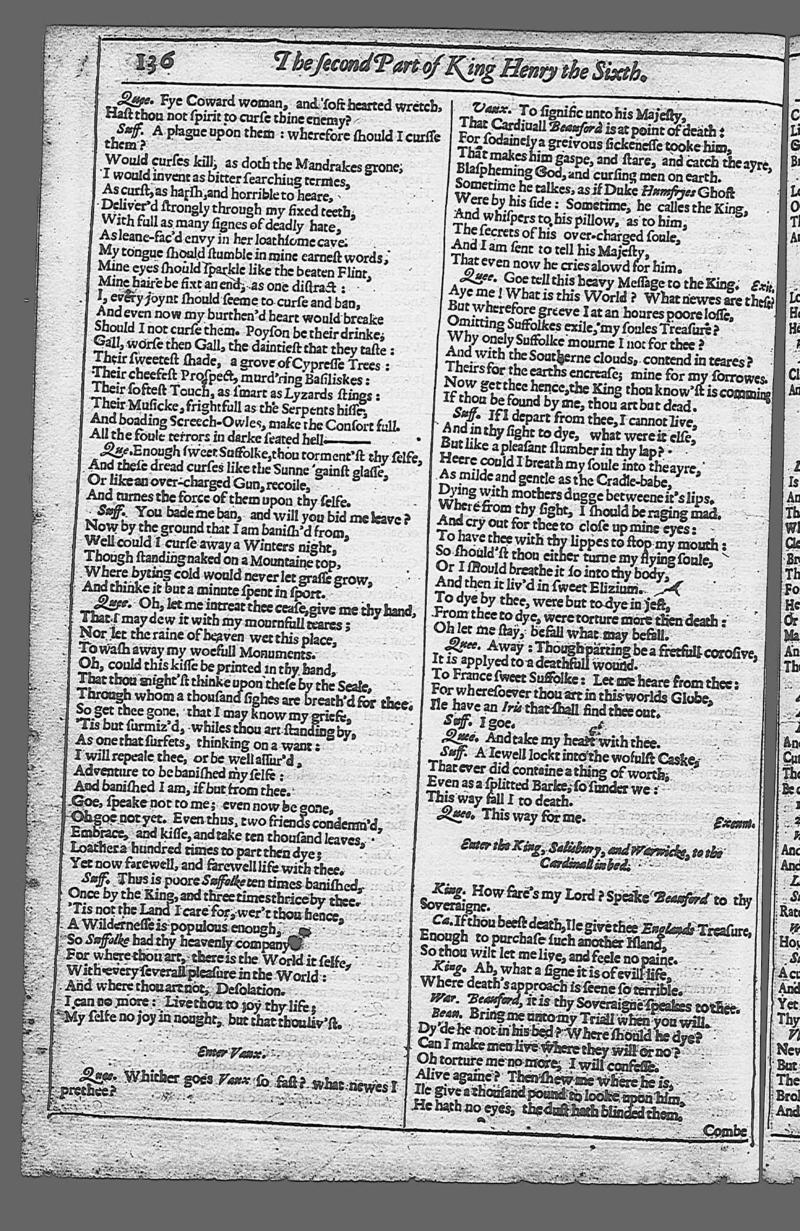 136 The second Part of King Henry the Sixth.
Quee. Fye Coward woman, and soft hearted wretch,
Hast thou not spirit to curse thine enemy?
Suff. A plague upon them: wherefore should I cursse
them?
Would curses kill, as doth the Mandrakes grone,
I would invent as bitter searching termes,
As curst, as harsh, and horrible to heare,
Deliver'd strongly through my fixed teeth,
With full as many signes of deadly hate,
As leane-fac'd envy in her loathsome cave.
My tongue should stumble in mine earnest words,
Mine eyes should sparkle like the beaten Flint,
Mine haire be fixt an end, as one distract:
I, every joynt should seeme to curse and ban,
And even now my burthen'd heart would breake
Should I not curse them. Poyson be their drinke;
Gall, worse then Gall, the daintiest that they taste:
Their sweetest shade, a grove of Cypresse Trees:
Their cheefest Prospect, murd'ring Basiliskes:
Their softest Touch, as smart as Lyzards stings:
Their Musicke, frightfull as the Serpents hisse,
And boading Screech-Owles, make the Consort full.
All the foule terrors in darke seated hell———
Que. Enough sweet Suffolke, thou torment'st thy selfe,
And these dread curses like the Sunne 'gainst glasse,
Or like an over-charged Gun, recoile,
And turnes the force of them upon thy selfe.
Suff. You bade me ban, and will you bid me leave?
Now by the ground that I am banish'd from,
Well could I curse away a Winters night,
Though standing naked on a Mountaine top,
Where byting cold would never let grasse grow,
And thinke it but a minute spent in sport.
Quee. Oh, let me intreat thee cease, give me thy hand,
That I may dew it with my mournfull teares;
Nor let the raine of heaven wet this place,
To wash away my woefull Monuments.
Oh, could this kisse be printed in thy hand,
That thou might'st thinke upon these by the Seale,
Through whom a thousand sighes are breath'd for thee.
So get thee gone, that I may know my griefe,
'Tis but surmiz'd, whiles thou art standing by,
As one that surfets, thinking on a want:
I will repeale thee, or be well assur'd,
Adventure to be banished my selfe:
And banished I am, if but from thee.
Goe, speake not to me; even now be gone,
Oh goe not yet. Even thus, two friends condemn'd,
Embrace, and kisse, and take ten thousand leaves,
Loather a hundred times to part then dye;
Yet now farewell, and farewell life with thee.
Suff. Thus is poore Suffolke ten times banished,
Once by the King, and three times thrice by thee.
'Tis not the Land I care for, wer't thou hence,
A Wildernesse is populous enough,
So Suffolke had thy heavenly company
For where thou art, there is the World it selfe,
With every severall pleasure in the World:
And where thou art not, Desolation.
I can no more: Live thou to joy thy life;
My selfe no joy in nought, but that thou liv'st.
Enter Vaux.
Quee. Whither goes Vaux so fast? what newes I
prethee?
Vaux. To signifie unto his Majesty,
That Cardinall Beauford is at point of death:
For sodainely a greivous sickenesse tooke him,
That makes him gaspe, and stare, and catch the ayre,
Blaspheming God, and cursing men on earth.
Sometime he talkes, as if Duke Humfryes Ghost
Were by his side: Sometime, he calles the King,
And whispers to his pillow, as to him,
The secrets of his over-charged soule,
And I am sent to tell his Majesty,
That even now he cries alowd for him.
Quee. Goe tell this heavy Message to the King. Exit.
Aye me! What is this World? What newes are these?
But wherefore greeve I at an houres poore losse,
Omitting Suffolkes exile, my soules Treasure?
Why onely Suffolke mourne I not for thee?
And with the Southerne clouds, contend in teares?
Theirs for the earths encrease; mine for my sorrowes.
Now get thee hence, the King thou know'st is comming
If thou be found by me, thou art but dead.
Suff. If I depart from thee, I cannot live,
And in thy sight to dye, what were it else,
But like a pleasant slumber in thy lap?
Heere could I breath my soule into the ayre,
As milde and gentle as the Cradle-babe,
Dying with mothers dugge betweene it's lips.
Where from thy sight, I should be raging mad.
And cry out for thee to close up mine eyes:
To have thee with thy lippes to stop my mouth:
So should'st thou either turne my flying soule,
Or I should breathe it so into thy body,
And then it liv'd in sweet Elizium.
To dye by thee, were but to dye in jest,
From thee to dye, were torture more then death:
Oh let me stay, befall what may befall.
Quee. Away: Though parting be a fretfull corosive,
It is applyed to a deathfull wound.
To France sweet Suffolke: Let me heare from thee:
For wheresoever thou art in this worlds Globe,
Ile have an Iris that shall find thee out.
Suff. I goe.
Quee. And take my heart with thee.
Suff. A Iewell lockt into the wofulst Caske,
That ever did containe a thing of worth,
Even as a splitted Barke, so sunder we:
This way fall I to death.
Quee. This way for me. Exeunt.
Enter the King, Salisbury, and Warwicke, to the
Cardinall in bed.
King. How fare's my Lord? Speake Beauford to thy
Soveraigne.
Ca. If thou beest death, Ile give thee Englands Treasure,
Enough to purchase such another Island,
So thou wilt let me live, and feele no paine.
King. Ah, what a signe it is of evill life,
Where death's approach is seene so terrible.
War. Beauford, it is thy Soveraigne speakes to thee.
Beau. Bring me unto my Triall when you will.
Dy'de he not in his bed? Where should he dye?
Can I make men live where they will or no?
Oh torture me no more, I will confesse.
Alive againe? Then shew me where he is,
Ile give a thousand pound to looke upon him,
He hath no eyes, the dust hath blinded them.
Combe